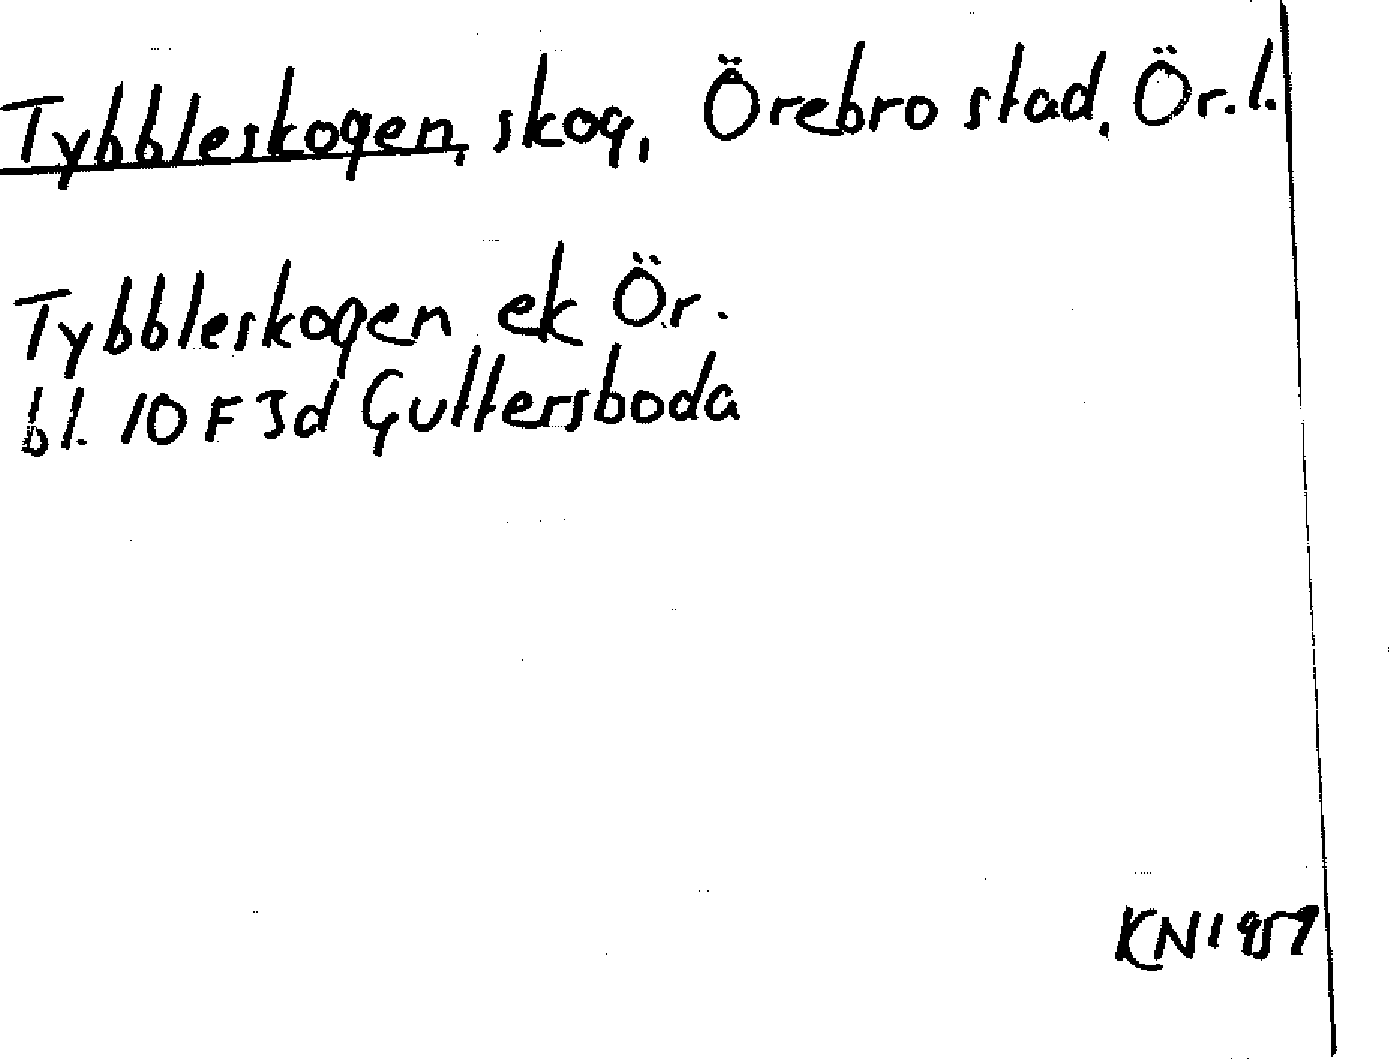 Tybbleskogen, skog, Örebro stad, Ör. l.
Tybbleskogen ek Ör.
bl. 10 F 3d Guttersboda
KN 1957